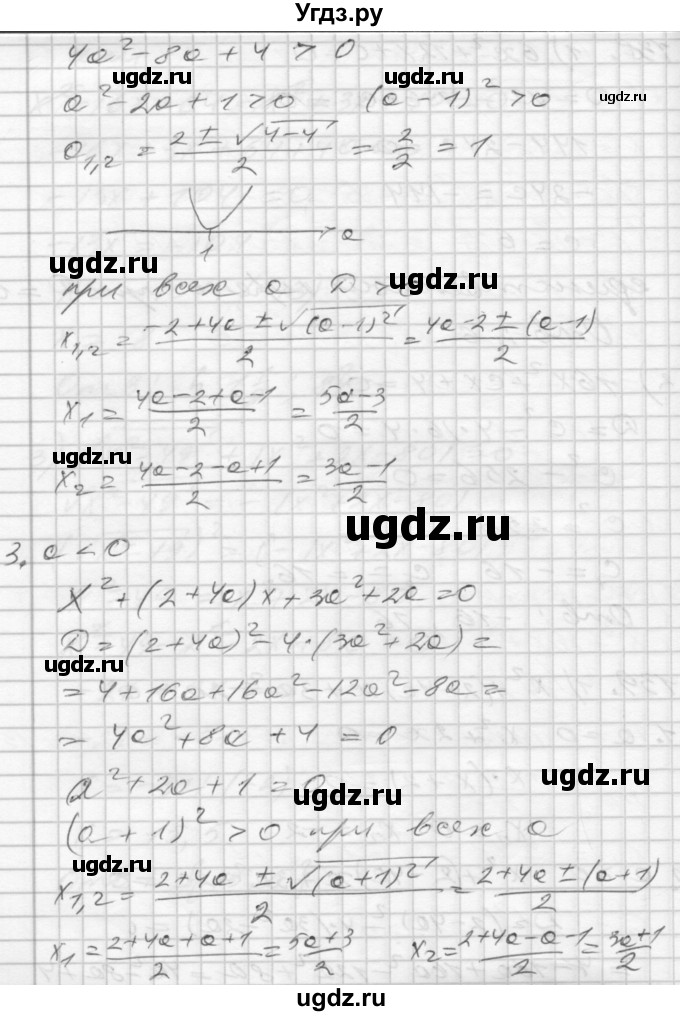 Угдз.ру
4a² - 8a + 4 > 0
ugdz.ru ugdz.ru
a² - 2a + 1 > 0 (a - 1)² > 0
ugdz.ru
a₁,₂ = (2 ± √(4-4))/2 = 2/2 = 1
1 a
ugdz.ru ugdz.ru
при всех a D > 0
x₁,₂ = (-2+4a ± √((a-1)²))/2 = (4a-2 ± (a-1))/2
x₁ = (4a-2+a-1)/2 = (5a-3)/2
ugdz.ru ugdz.ru
x₂ = (4a-2-a+1)/2 = (3a-1)/2
ugdz.ru
3. a < 0
x² + (2+4a)x + 3a² + 2a = 0
D = (2+4a)² - 4·(3a² + 2a) =
ugdz.ru ugdz.ru
= 4 + 16a + 16a² - 12a² - 8a =
= 4a² + 8a + 4 = 0
ugdz.ru
a² + 2a + 1 = 0
ugdz.ru
(a + 1)² > 0 при всех a
ugdz.ru ugdz.ru
x₁,₂ = (2+4a ± √((a+1)²))/2 = (2+4a ± (a+1))/2
x₁ = (2+4a+a+1)/2 = (5a+3)/2 x₂ = (2+4a-a-1)/2 = (3a+1)/2
ugdz.ru